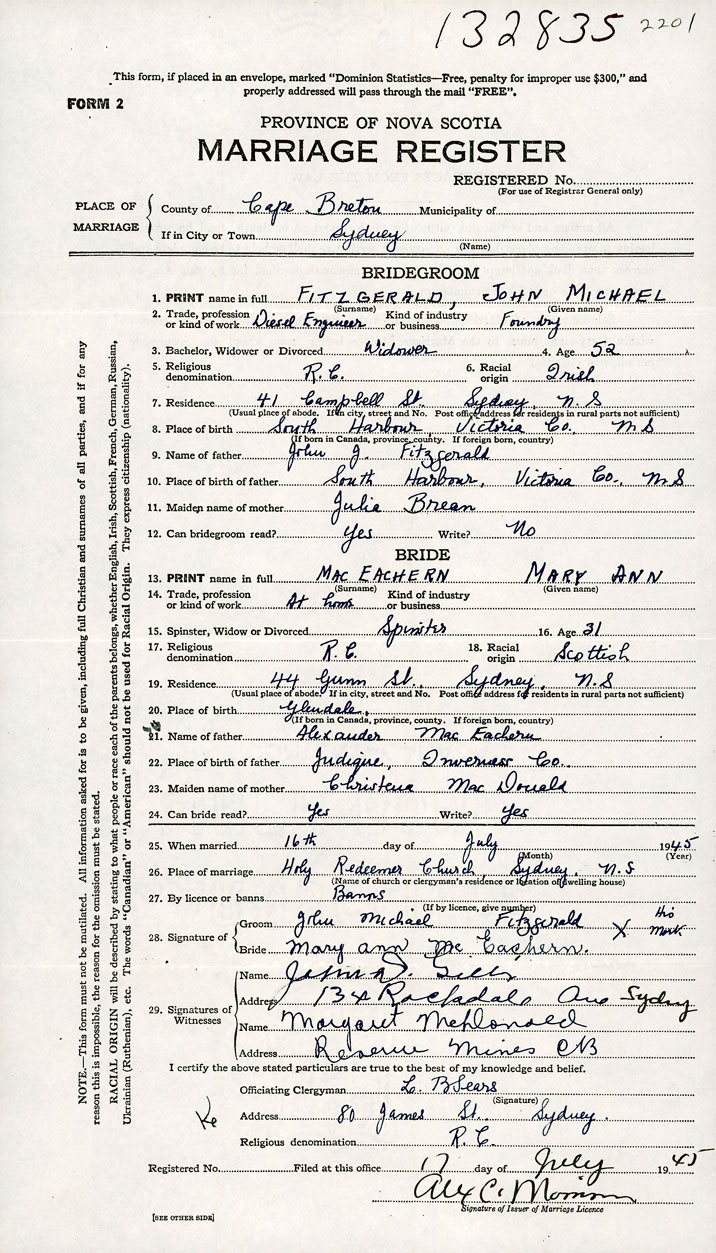 132835 2201
This form, if placed in an envelope, marked "Dominion Statistics—Free, penalty for improper use $300," and
properly addressed will pass through the mail "FREE".
FORM 2
PROVINCE OF NOVA SCOTIA
MARRIAGE REGISTER
REGISTERED No.
(For use of Registrar General only)
PLACE OF MARRIAGE
County of Cape Breton Municipality of
If in City or Town Sydney
(Name)
BRIDEGROOM
1. PRINT name in full FITZGERALD, JOHN MICHAEL
(Surname) (Given name)
2. Trade, profession or kind of work Diesel Engineer Kind of industry or business Foundry
3. Bachelor, Widower or Divorced Widower 4. Age 52
5. Religious denomination R.C. 6. Racial origin Irish
7. Residence 41 Campbell St. Sydney, N.S
(Usual place of abode. If in city, street and No. Post office address for residents in rural parts not sufficient)
8. Place of birth South Harbour, Victoria Co., N S
(If born in Canada, province, county. If foreign born, country)
9. Name of father John J. Fitzgerald
10. Place of birth of father South Harbour, Victoria Co., N S
11. Maiden name of mother Julia Brean
12. Can bridegroom read? Yes Write? No
BRIDE
13. PRINT name in full MAC EACHERN MARY ANN
(Surname) (Given name)
14. Trade, profession or kind of work At home Kind of industry or business
15. Spinster, Widow or Divorced Spinster 16. Age 31
17. Religious denomination R.C. 18. Racial origin Scottish
19. Residence 44 Gunn St., Sydney, N.S
(Usual place of abode. If in city, street and No. Post office address for residents in rural parts not sufficient)
20. Place of birth Glendale,
(If born in Canada, province, county. If foreign born, country)
21. Name of father Alexander Mac Eachern
22. Place of birth of father Judique, Inverness Co.
23. Maiden name of mother Christena Mac Donald
24. Can bride read? Yes Write? Yes
25. When married 16th day of July 1945
(Month) (Year)
26. Place of marriage Holy Redeemer Church, Sydney, N.S
(Name of church or clergyman's residence or location of dwelling house)
27. By licence or banns Banns
(If by licence, give number)
28. Signature of
Groom John Michael Fitzgerald X His mark
Bride Mary Ann Mc Eachern.
29. Signatures of Witnesses
Name
Address 134 Rockdale Ave Sydney
Name Margaret McDonald
Address Reserve Mines CB
I certify the above stated particulars are true to the best of my knowledge and belief.
Officiating Clergyman L. B Sears
(Signature)
Address 80 James St. Sydney.
Religious denomination R.C.
Registered No. Filed at this office 17 day of July 1945
Alex C.
Signature of Issuer of Marriage Licence
[SEE OTHER SIDE]
NOTE.—This form must not be mutilated. All information asked for is to be given, including full Christian and surnames of all parties, and if for any
reason this is impossible, the reason for the omission must be stated.
RACIAL ORIGIN will be described by stating to what people or race each of the parents belongs, whether English, Irish, Scottish, French, German, Russian,
Ukrainian (Ruthenian), etc. The words "Canadian" or "American" should not be used for Racial Origin. They express citizenship (nationality).